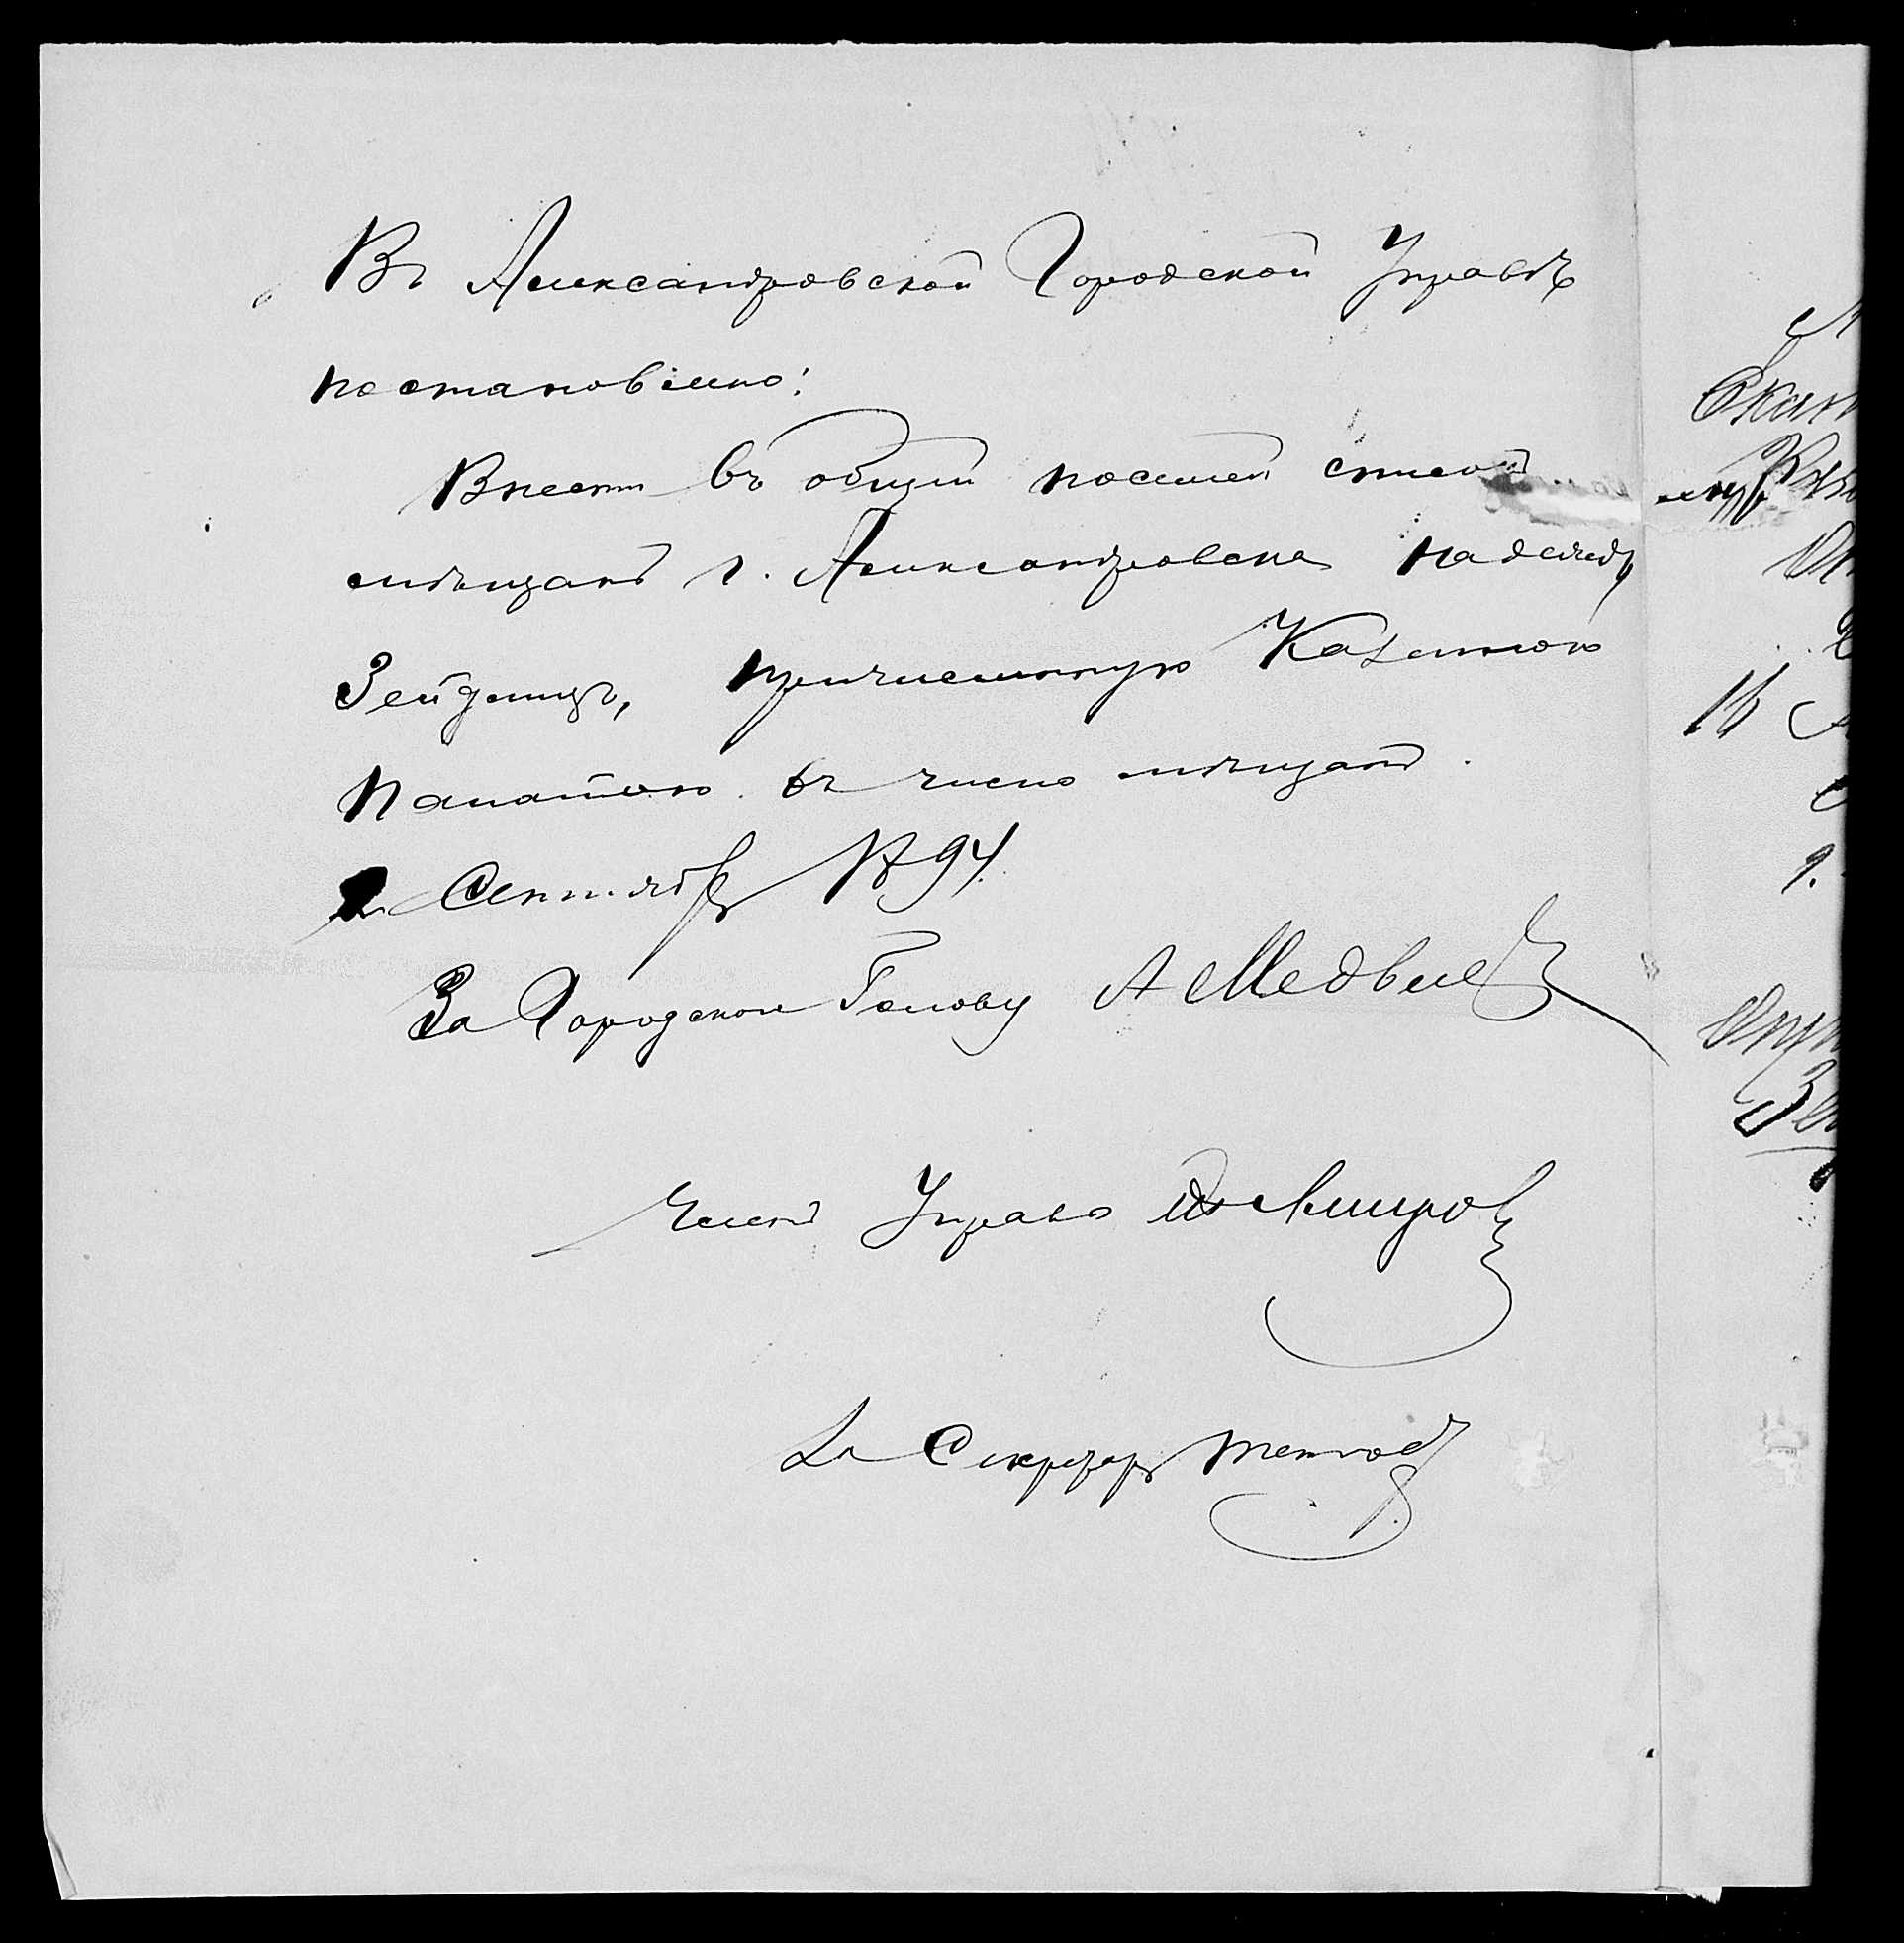 Въ Александровской Городской Управѣ
постановлено:
Внести въ общій посемей списокъ
мѣщанъ г. Александровска Надежду
Зейдлицъ, причисленную Казенною
Палатою въ число мѣщанъ.
2 Сентября 1894.
За Городского Голову А Медвед
Членъ Управы
Секретарь
Скан
16
9.